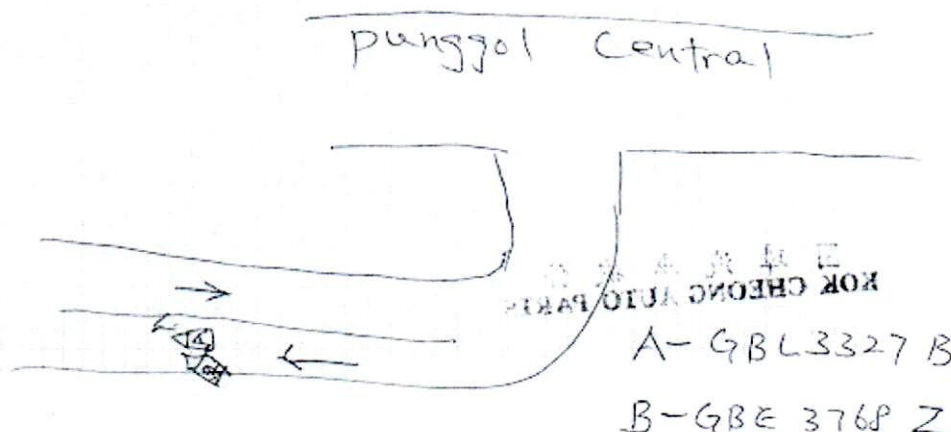 punggol Central
KOK CHEONG AUTO PARTS
A
A - GBL 3327 B
B - GBE 3768 Z